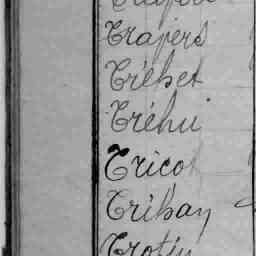 Trajers
Tréhet
Tréhui
Tricot
Tribay
Trotin